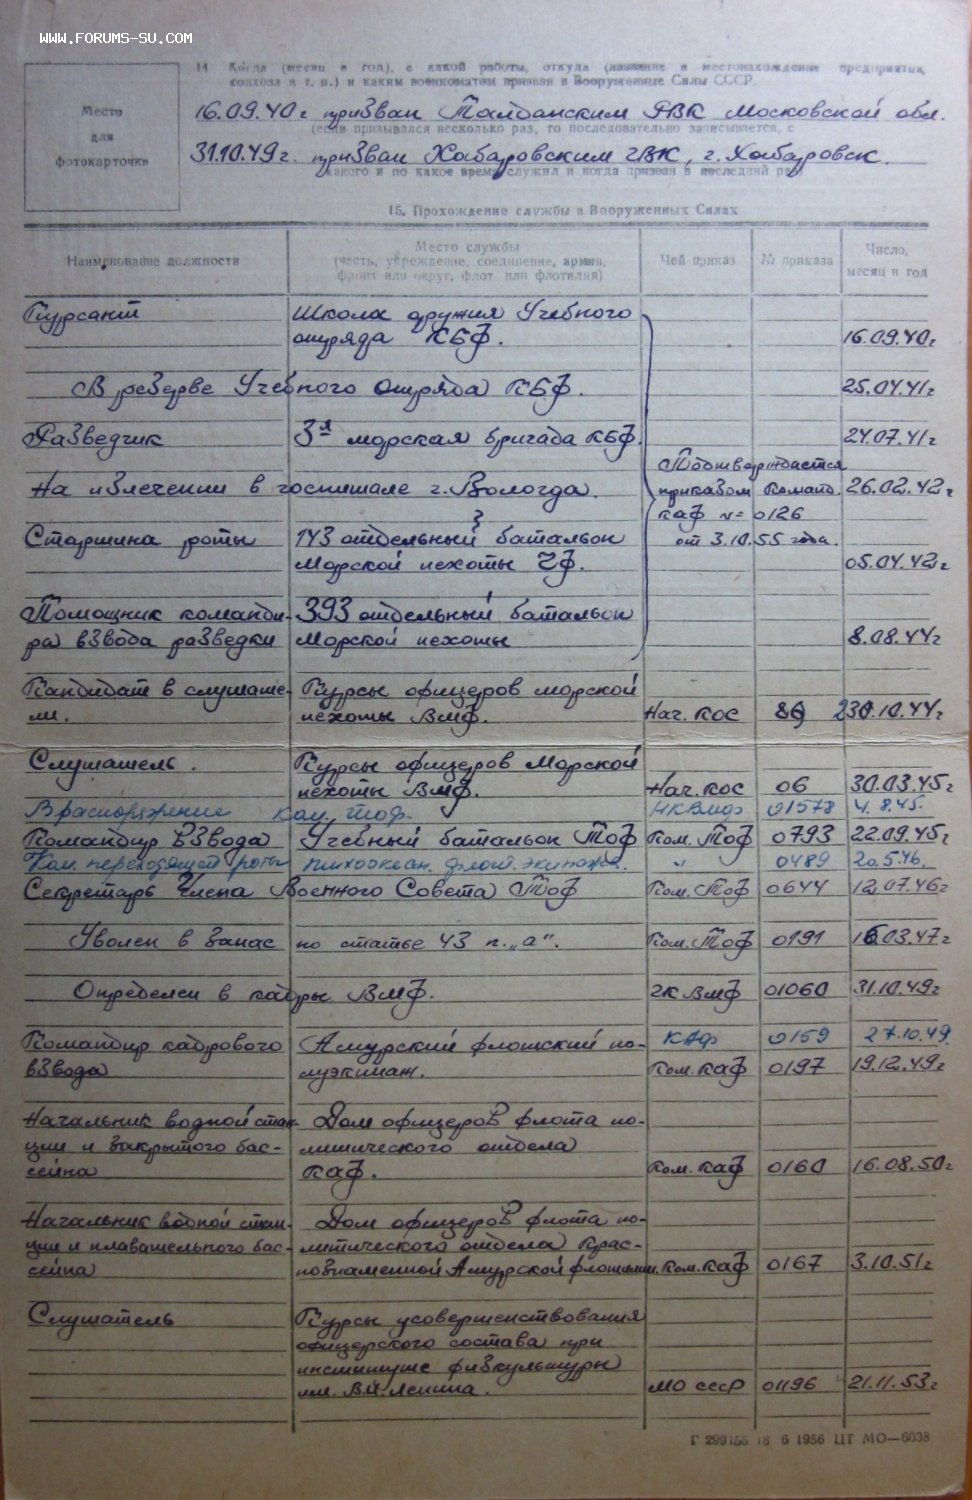 WWW.FORUMS-SU.COM
Место
для
фотокарточки
14 Когда (месяц и год), с какой работы, откуда (название и местонахождение предприятия,
колхоза и т. п.) и каким военкоматом призван в Вооруженные Силы СССР.
16.09.40 г призван Талданским РВК Московской обл.
(если призывался несколько раз, то последовательно записывается, с
31.10.49 г. призван Хабаровским ГВК, г. Хабаровск.
какого и по какое время служил и когда призван в последний раз)
15. Прохождение службы в Вооруженных Силах
Наименование должности
Место службы
(часть, учреждение, соединение, армия,
фронт или округ, флот или флотилия)
Чей приказ
№ приказа
Число,
месяц и год
Курсант Школа оружия Учебного
отряда КБФ. 16.09.40г
В резерве Учебного Отряда КБФ. 25.04.41г
Разведчик 3я морская бригада КБФ. 24.07.41г
Подтверждается
На излечении в госпитале г. Вологда. приказом Команд. 26.02.42г
КАФ № 0126
Старшина роты 143 отдельный батальон от 3.10.55 года.
Морской пехоты ЧФ. 05.04.42г
Помощник команди- 393 отдельный батальон
ра взвода разведки Морской пехоты 8.08.44г
Кандидат в слушате- Курсы офицеров морской
ли. пехоты ВМФ. Нач. КОС 30.10.44г
Слушатель. Курсы офицеров Морской
пехоты ВМФ. Нач. КОС 06 30.03.45г
В распоряжение Ком. Тоф. НКВмф 01578 4.8.45.
Командир взвода Учебный батальон Тоф Ком. Тоф 0793 22.09.45г
Ком. переходящей роты тихоокеан. флот. экипажа. " 0489 20.5.46.
Секретарь Члена Военного Совета Тоф Ком. Тоф 0644 12.07.46г
Уволен в запас по статье 43 п. „а“. Ком. Тоф 0191 16.03.47г
Определен в кадры ВМФ. ГК ВМФ 01060 31.10.49г
Командир кадрового Амурский флотский по- КАф 0159 27.10.49
взвода луэкипаж. Ком. КАФ 0197 19.12.49г
Начальник водной стан- Дом офицеров флота по-
ции и закрытого бас- литического отдела
сейна КАФ. Ком. КАФ 0160 16.08.50г
Начальник водной стан- Дом офицеров флота по-
ции и плавательного бас- литического отдела Крас-
сейна нознаменной Амурской флотилии. Ком. КАФ 0167 3.10.51г
Слушатель Курсы усовершенствования
офицерского состава при
институте физкультуры
им. В.И. Ленина. МО СССР 01196 21.11.53г
Г 299156 18 6 1956 ЦТ МО—6038